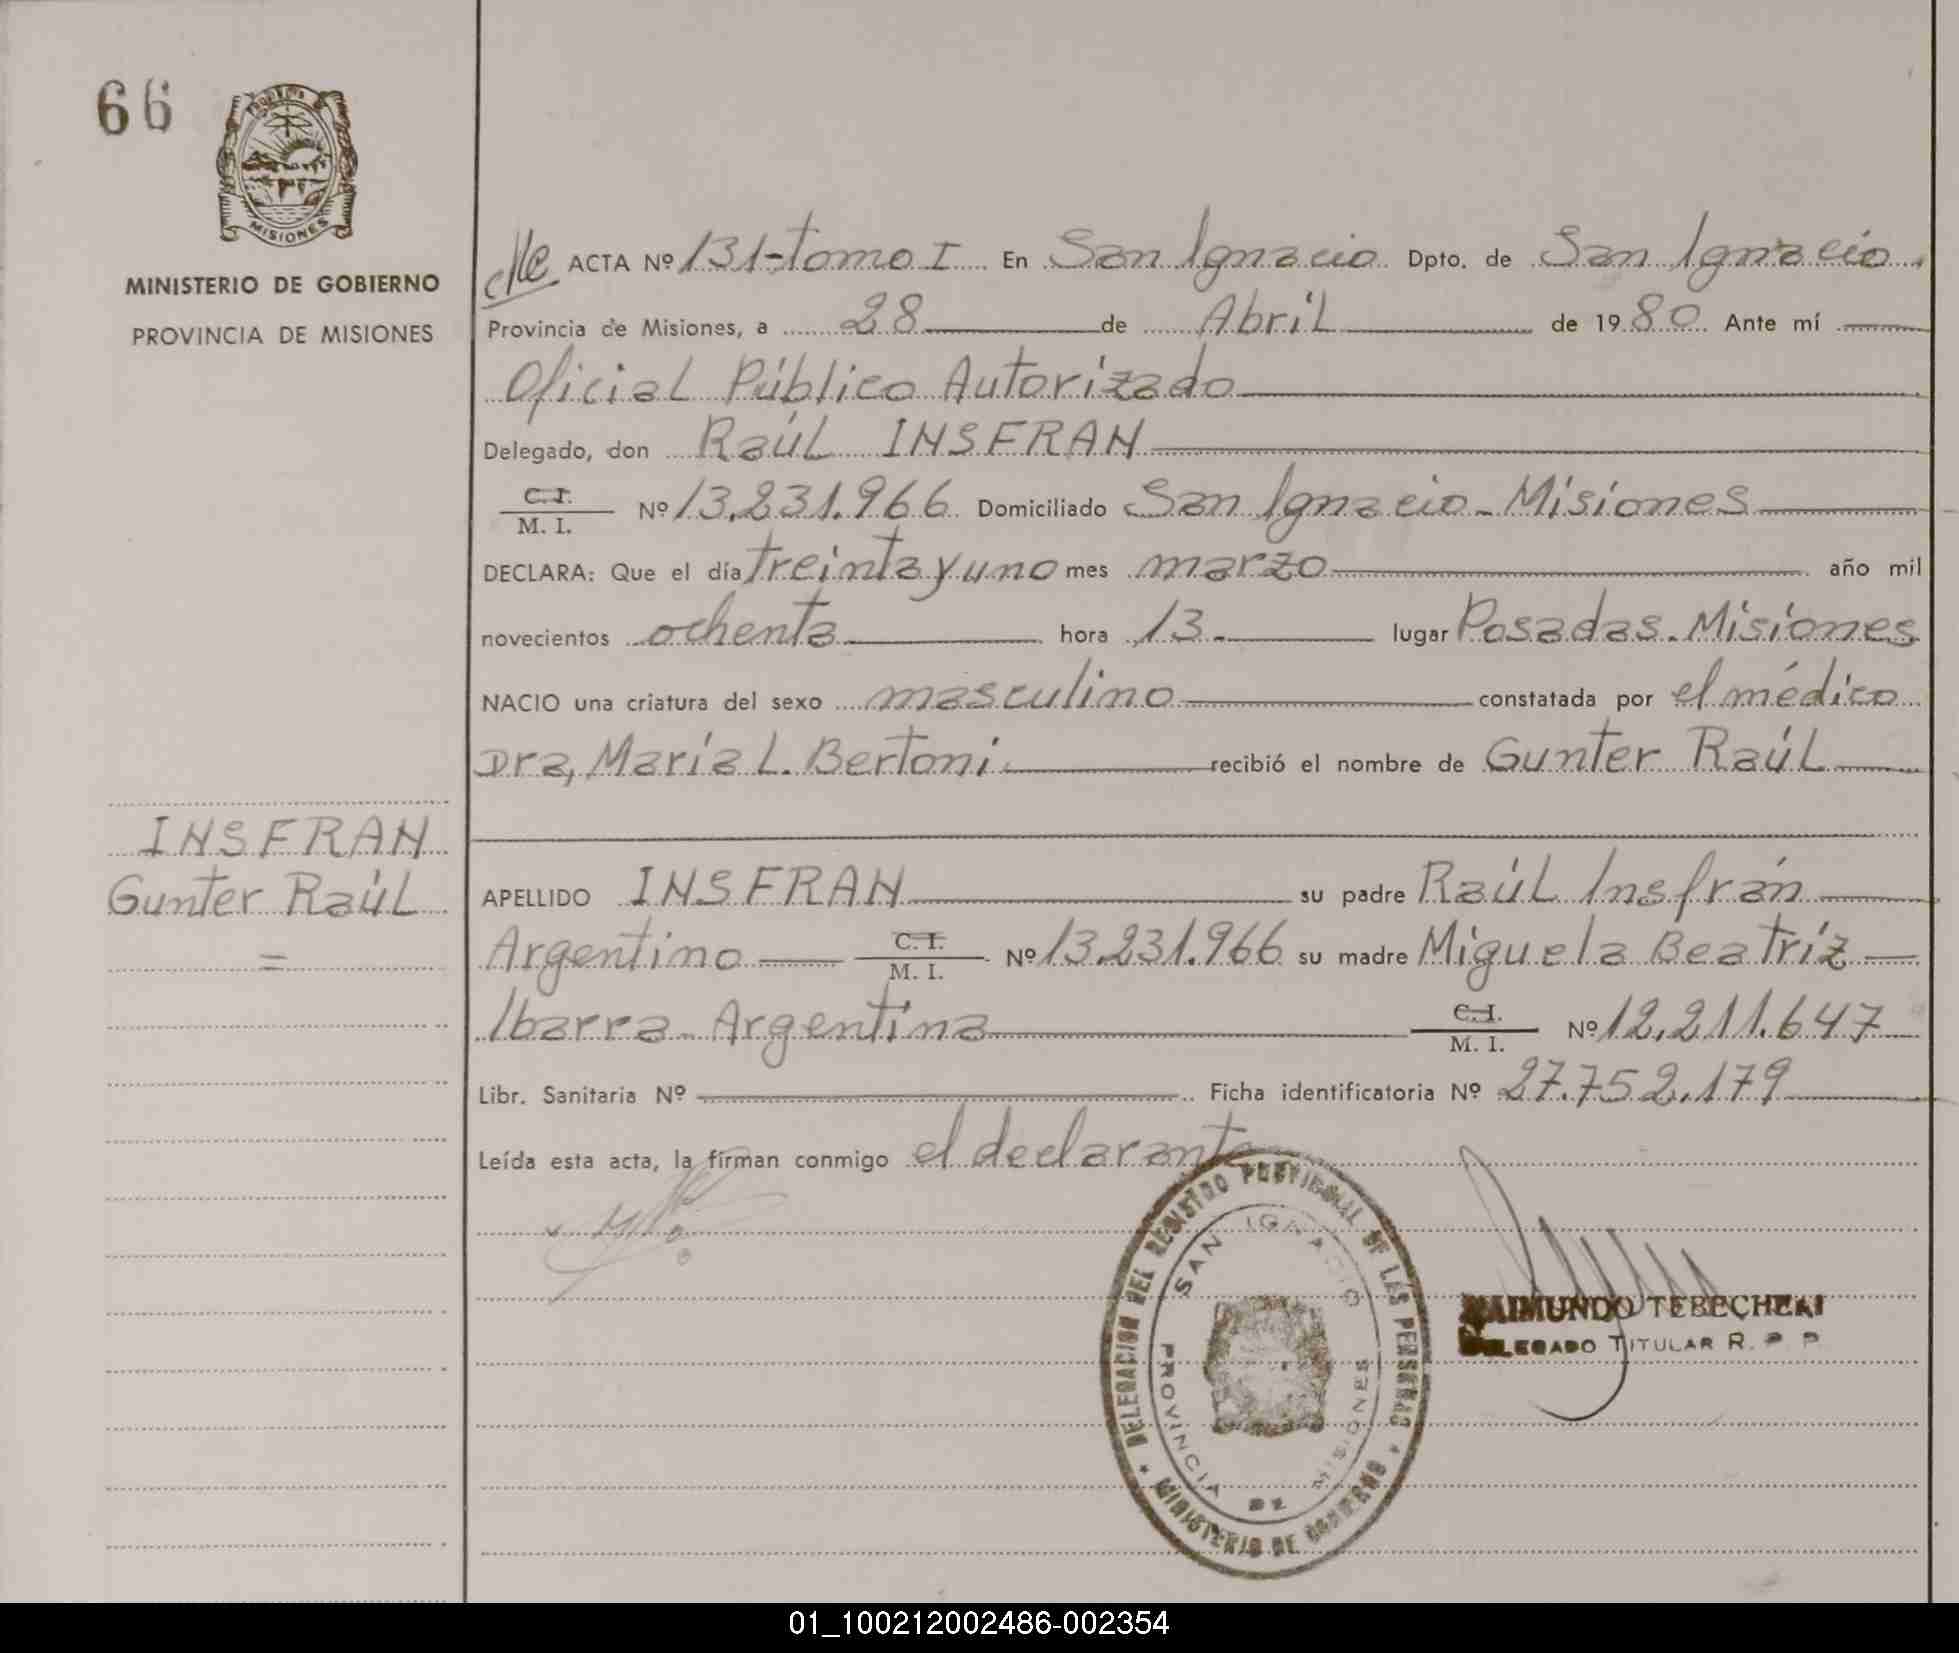 66
MISIONES
MINISTERIO DE GOBIERNO
PROVINCIA DE MISIONES
ACTA Nº 131-tomo I En San Ignacio Dpto. de San Ignacio
Provincia de Misiones, a 28 de Abril de 1980 Ante mí
Oficial Público Autorizado
Delegado, don Raúl INSFRAN
C.I.
M. I. Nº 13.231.966 Domiciliado San Ignacio - Misiones
DECLARA: Que el día treinta y uno mes marzo año mil
novecientos ochenta hora 13- lugar Posadas - Misiones
NACIO una criatura del sexo masculino constatada por el médico
Dra, María L. Bertoni recibió el nombre de Gunter Raúl
INSFRAN
Gunter Raúl
=
APELLIDO INSFRAN su padre Raúl Insfrán
Argentino C.I. M. I. Nº 13.231.966 su madre Miguela Beatríz
Ibarra - Argentina C.I. M. I. Nº 12.211.647
Libr. Sanitaria Nº Ficha identificatoria Nº 27.752.179
Leída esta acta, la firman conmigo el declarante
DELEGACION DEL REGISTRO PROVINCIAL DE LAS PERSONAS
MINISTERIO DE GOBIERNO
SAN IGNACIO
PROVINCIA DE MISIONES
RAIMUNDO TEBECHERI
DELEGADO TITULAR R. P P
01_100212002486-002354